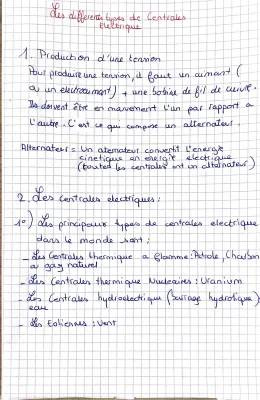 Les différents types de Centrales
Electrique
1. Production d'une tension
Pour produire une tension, il faut un aimant (
ou un electroaimant) + une bobine de fil de cuivre.
Ils doivent être en mouvement l'un par rapport a
l'autre. C'est ce qui compose un alternateur.
Alternateur = Un alternateur convertit l'energie
cinetique en energie électrique
(toutes les centrales ont un alternateur)
2. Les centrales electriques:
1°) Les principaux types de centrales electrique
dans le monde sont:
- Les Centrales thermique a flamme: Petrole, Charbon
ou gaz naturel
- Les Centrales thermique Nucleaires: Uranium
- Les Centrales hydroelectrique (barrage hydrolique)
eau
- Les Eoliennes: Vent